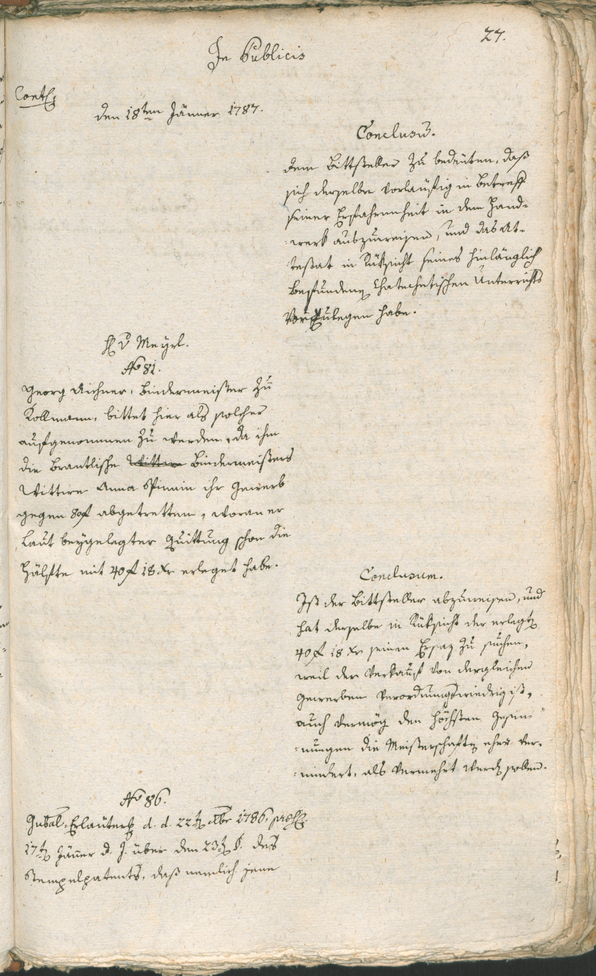 27.
In Publicis
den 18ten Jänner 1787.
Conclusum.
dem Bittsteller zu bedeuten, daß
sich derselbe vorläufig in Betreff
seiner Erfahrenheit in dem Hand-
werk auszuweisen, und das At-
testat in Rüksicht seines hinlänglich
befundenen Chatechetischen Unterrichts
vorzulegen habe.
H v Meyrl.
No 81.
Georg Aichner, Bindermeister zu
Kollmann, bittet hier als solcher
aufgenommen zu werden, da ihm
die Brantlische Bindermeisters
Wittwe Anna ihr Gewerb
gegen 80f abgetretten, woran er
laut beygelegter Quittung schon die
Hälfte mit 40f 18 Xr erleget habe.
Conclusum.
Ist der Bittsteller abzuweisen, und
hat derselbe in Rüksicht der erlegten
40f 18 Xr seinen Ersaz zu suchen,
weil der Verkauf von dergleichen
Gewerben Verordnungswiedrig ist,
auch vermög den höchsten Gesin-
nungen die Meisterschaften eher ver-
mindert, als vermehrt werden sollen.
No 86.
Gubal. Erläuterg d. d. 22ten xbr 1786.
17ten Jänner d. J. über den 23ten §. des
Stempelpatents, daß nemlich jene